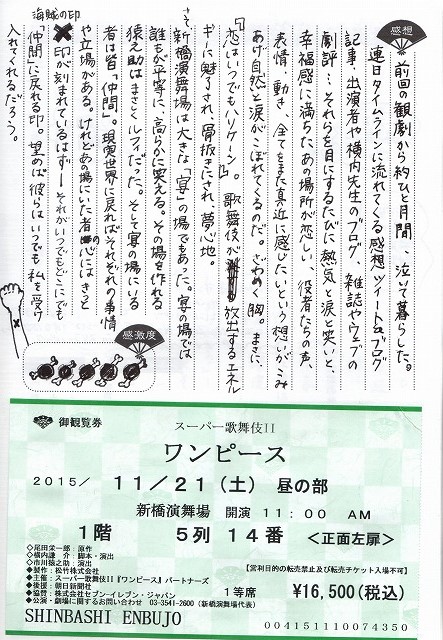 感想
前回の観劇から約ひと月間、泣いて暮らした。
連日タイムラインに流れてくる感想ツイート、ブログ
記事、出演者や横内先生のブログ、雑誌やウェブの
劇評…それらを目にするたびに熱気と涙と笑いと、
幸福感に満ちたあの場所が恋しい、役者たちの声、
表情、動き、全てをまた真近に感じたいという想いがこみ
あげ自然と涙がこぼれてくるのだ。ざわめく胸。まさに、
『恋はいつでもハリケーン。』歌舞伎が放出するエネル
ギーに魅了され、骨抜きにされ、夢心地。
さて、新橋演舞場は大きな「宴」の場でもあった。宴の場では
誰もが平等に、高らかに笑える。その場を作れる
猿之助はまさしくルフィだった。そして宴の場にいる
者は皆「仲間」。現実世界に戻ればそれぞれの事情
や立場がある。けれどあの場にいた者の心にはきっと
海賊の印
印が刻まれているはず―それがいつでもどこにでも
「仲間」に戻れる印。望めば彼らはいつでも私を受け
入れてくれるだろう。
感激度
御観覧券
スーパー歌舞伎II
ワンピース
2015/ 11/21(土) 昼の部
新橋演舞場 開演 11:00 AM
1階 5列 14番 <正面左扉>
◆尾田栄一郎:原作
◆横内謙介:脚本・演出
◆市川猿之助:演出
◆製作:松竹株式会社
◆主催:スーパー歌舞伎II『ワンピース』パートナーズ
◆後援:朝日新聞社
◆協賛:株式会社セブン‐イレブン・ジャパン
◆公演・劇場に関するお問い合わせ 03-3541-2600(新橋演舞場代表)
【営利目的の転売禁止及び転売チケット入場不可】
1等席 ¥16,500(税込)
SHINBASHI ENBUJO
0041511100 74350